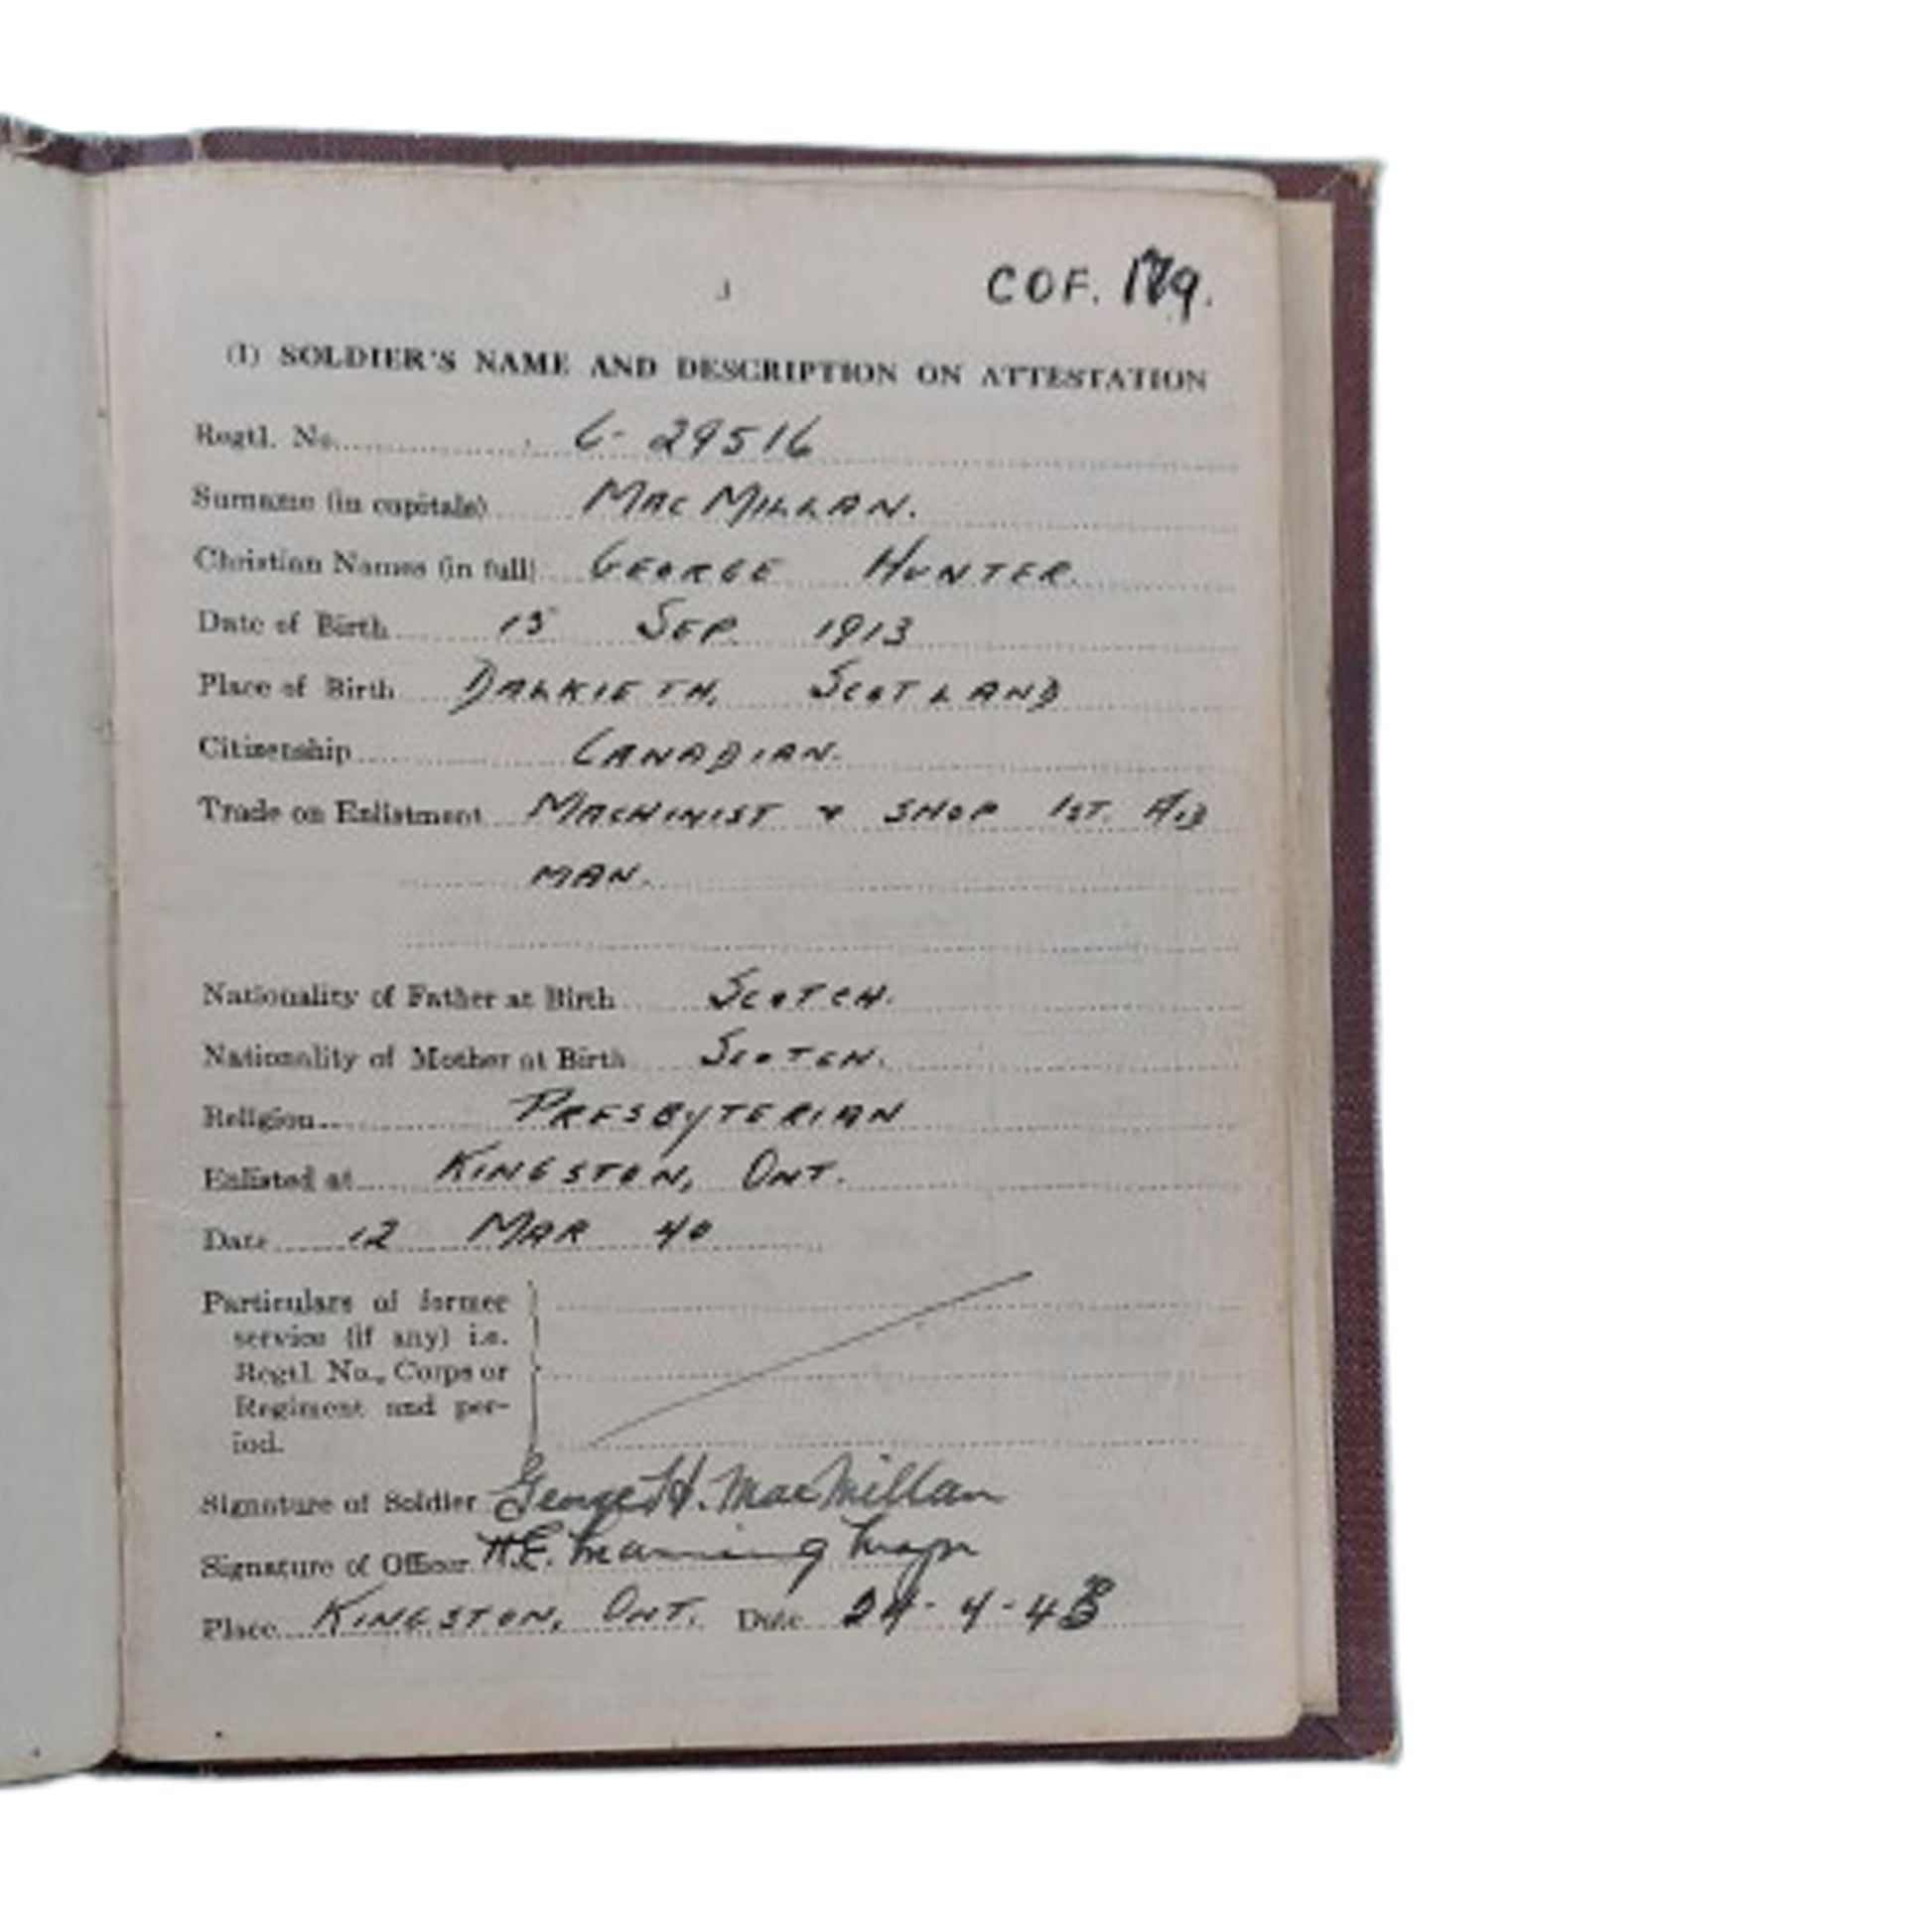 3
COF. 179.
(1) SOLDIER'S NAME AND DESCRIPTION ON ATTESTATION
Regtl. No. C-29516
Surname (in capitals) MACMILLAN.
Christian Names (in full) GEORGE HUNTER.
Date of Birth 15 SEP. 1913
Place of Birth DALKIETH, SCOTLAND
Citizenship CANADIAN.
Trade on Enlistment MACHINIST & SHOP 1ST. AID
MAN.
Nationality of Father at Birth SCOTCH.
Nationality of Mother at Birth SCOTCH.
Religion PRESBYTERIAN
Enlisted at KINGSTON, ONT.
Date 12 MAR 40
Particulars of former
service (if any) i.e.
Regtl. No., Corps or
Regiment and per-
iod.
Signature of Soldier George H. MacMillan
Signature of Officer H.E. Manning Major
Place KINGSTON, ONT. Date 24-4-43